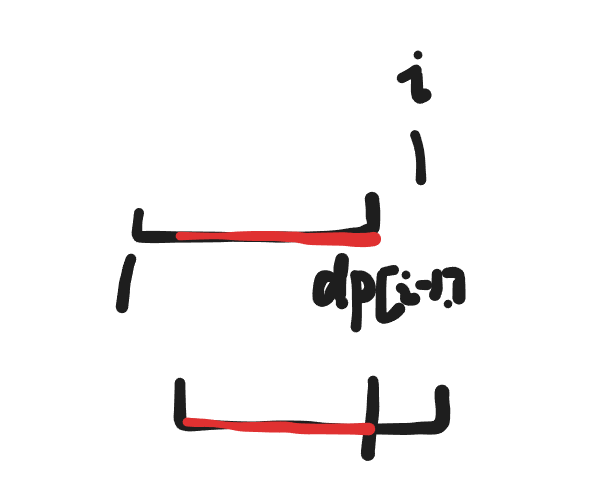 i
1
dp[i-1]